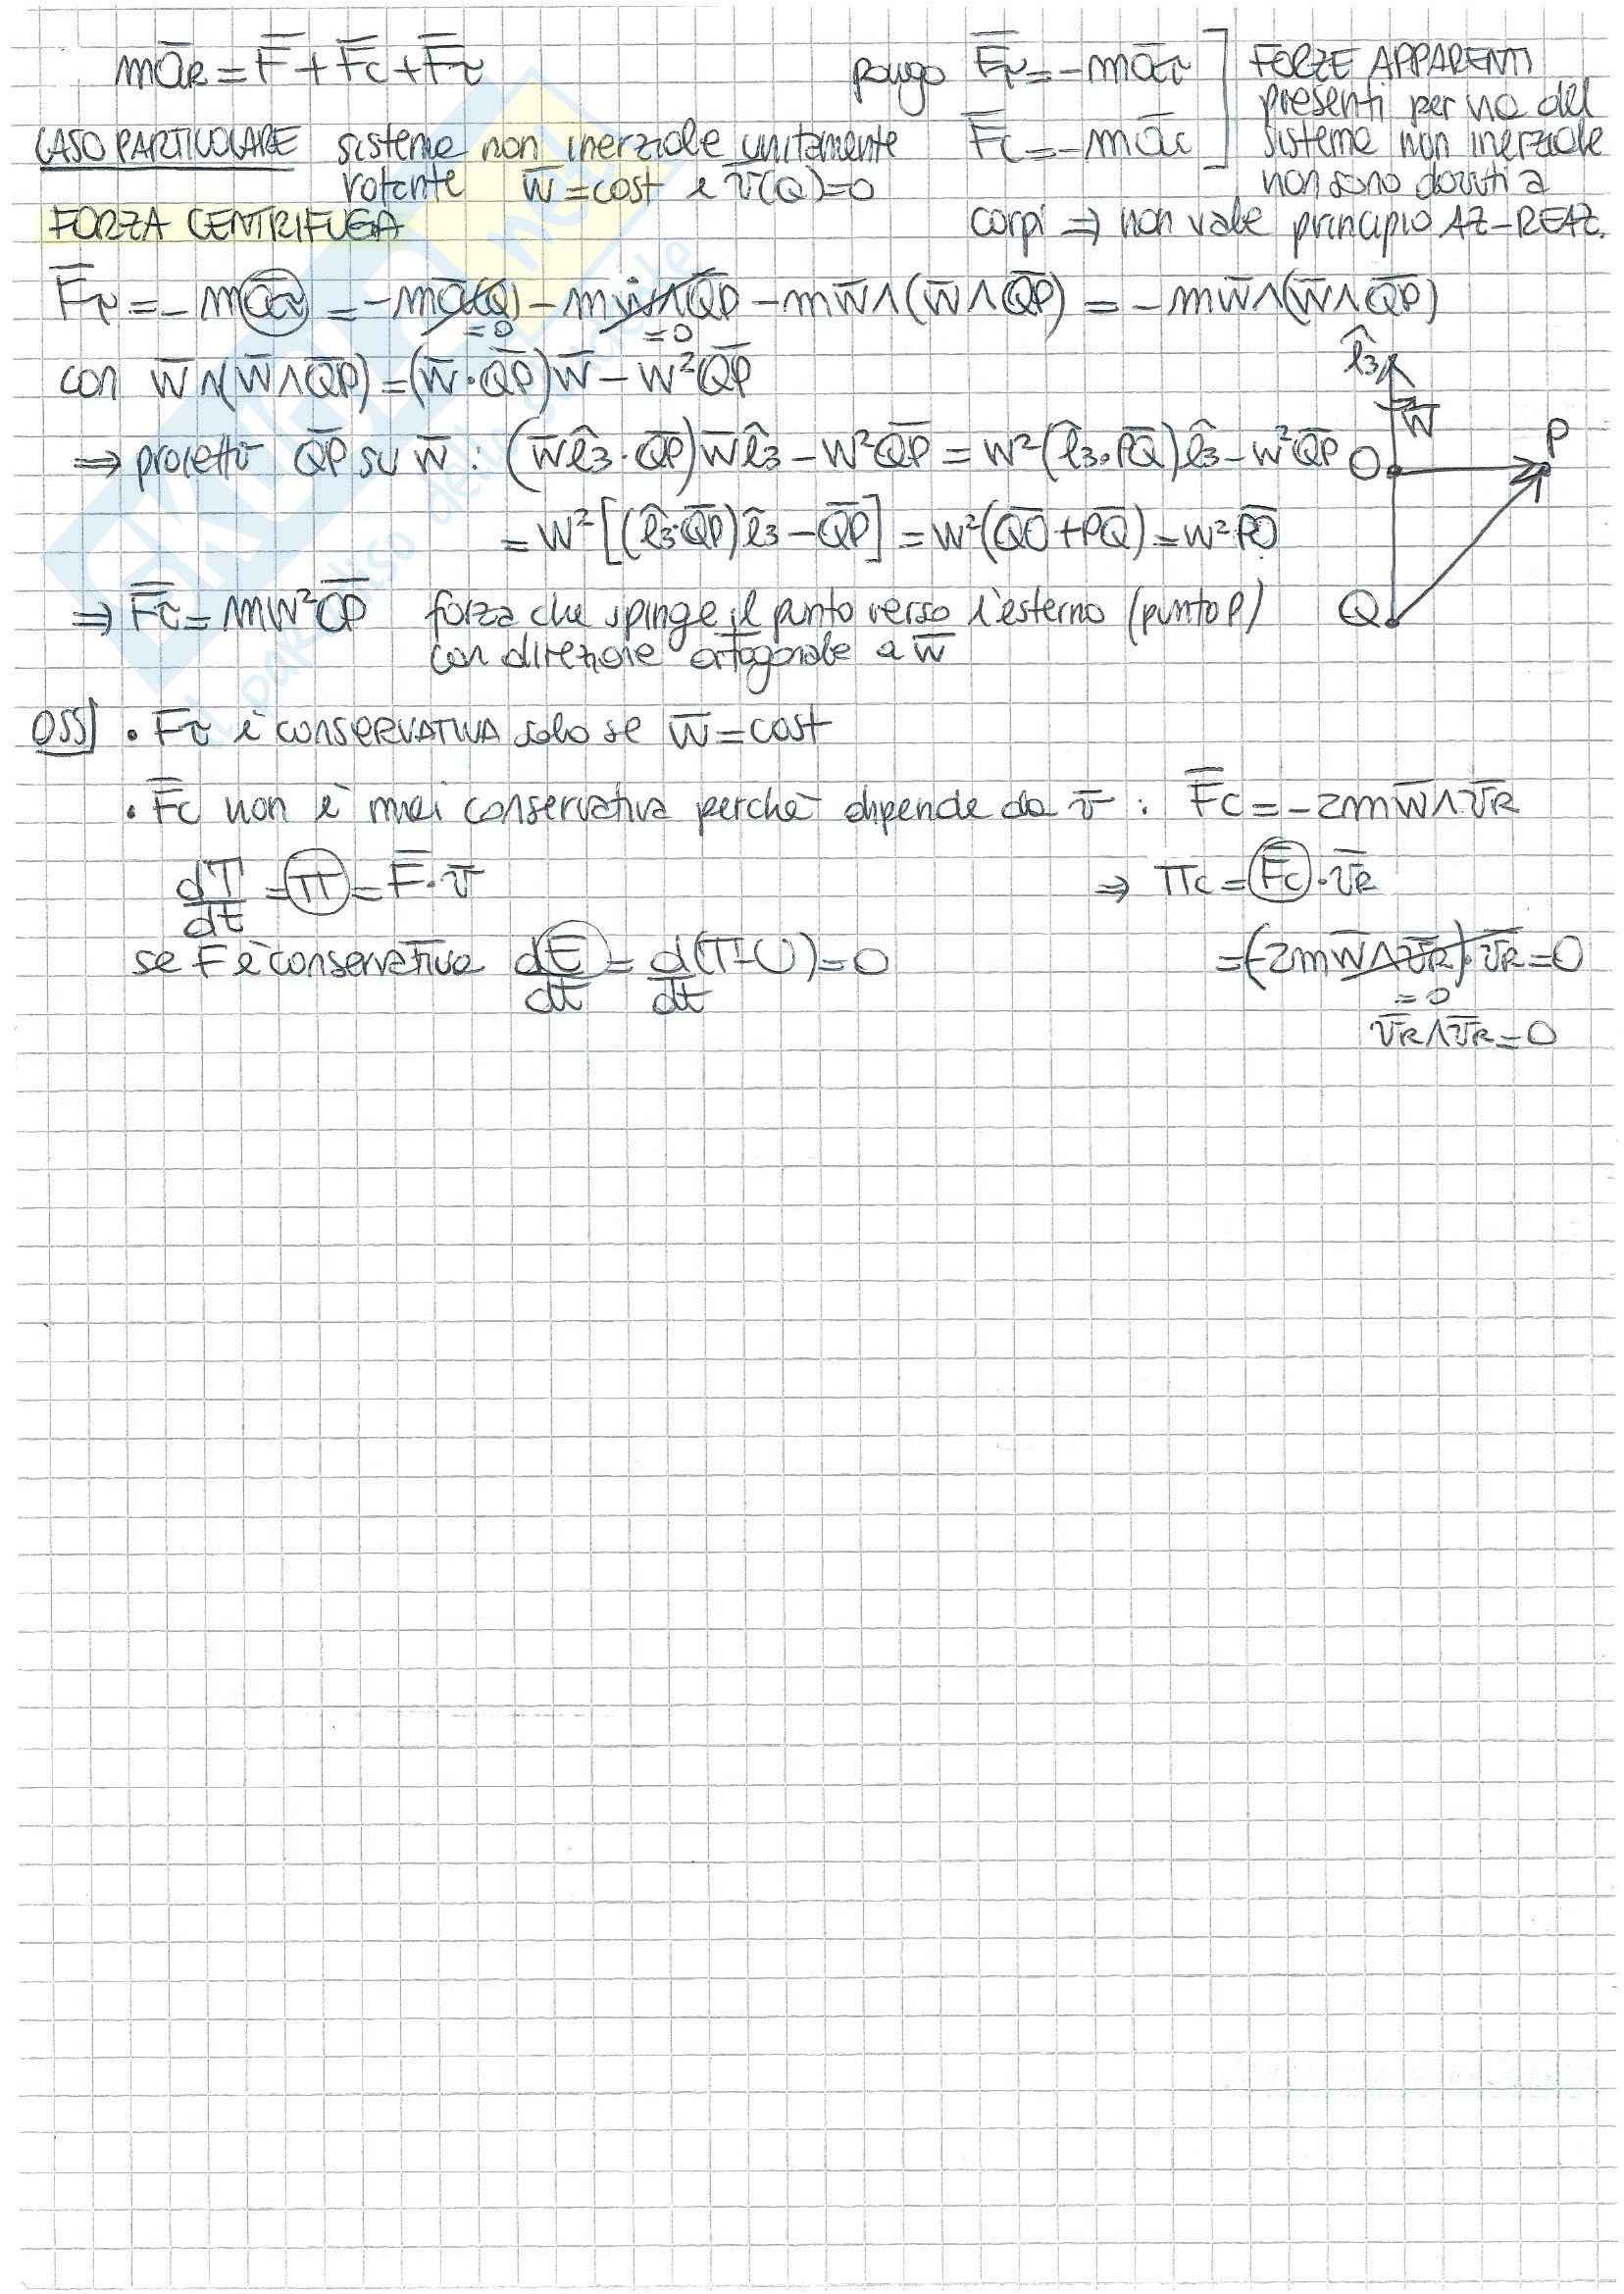 mā_R = F̄ + F̄_C + F̄_τ
pongo F̄_τ = -mā_τ
F̄_C = -mā_C
FORZE APPARENTI
presenti per via del
sistema non inerziale
non sono dovuti a
corpi ⇒ non vale principio AZ-REAZ.
CASO PARTICOLARE sistema non inerziale unitamente
rotante w̄ = cost e v̄(Q)=0
FORZA CENTRIFUGA
F̄_τ = -mā_τ = -mā(Q) - mẇ̄∧Q̄P̄ - mw̄∧(w̄∧Q̄P̄) = -mw̄∧(w̄∧Q̄P̄)
=0 =0
con w̄∧(w̄∧Q̄P̄) = (w̄·Q̄P̄)w̄ - w²Q̄P̄
⇒ proietto Q̄P̄ su w̄ : (w̄ê₃·Q̄P̄)w̄ê₃ - w²Q̄P̄ = w²(ê₃·P̄Q̄)ê₃ - w²Q̄P̄
= w²[(ê₃·Q̄P̄)ê₃ - Q̄P̄] = w²(Q̄Ō + P̄Q̄) = w²P̄Ō
ê₃
w̄
O
P
Q
⇒ F̄_τ = mw²ŌP̄ forza che spinge il punto verso l'esterno (punto P)
con direzione ortogonale a w̄
OSS • F_τ è CONSERVATIVA solo se w̄ = cost
• F̄_C non è mai conservativa perché dipende da v̄ : F̄_C = -2mw̄∧v̄_R
dT/dt = Π = F̄·v̄
⇒ Π_C = F̄_C·v̄_R
se F è conservativa dE/dt = d(T-U)/dt = 0
= (-2mw̄∧v̄_R)·v̄_R = 0
= 0
v̄_R∧v̄_R = 0